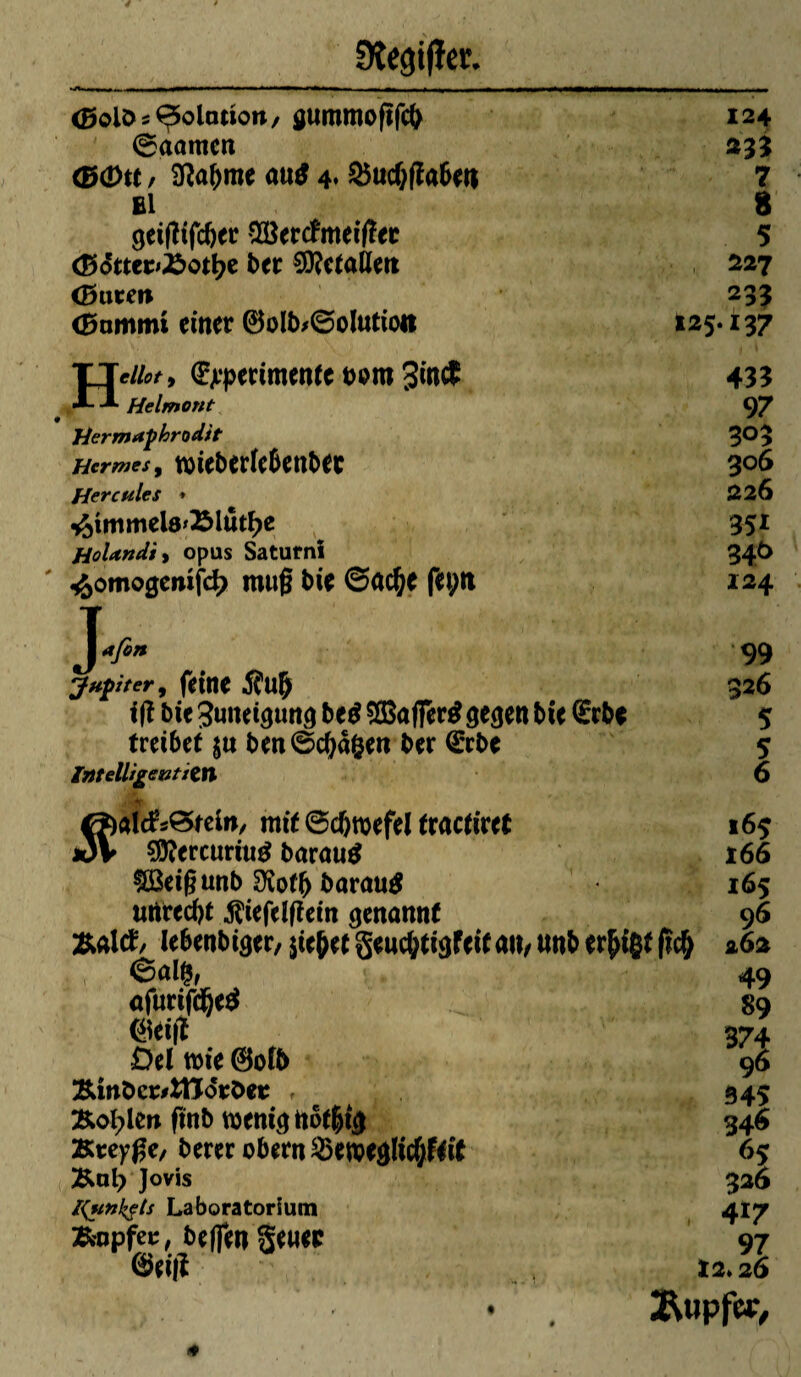 Register.
Gold-Solution, gummosisch 124
Saamen 233
GOtt, Nahme aus 4. Buchstaben 7
El 8
geistischer Werckmeister 5
Götter-Bothe der Metallen 227
Guren 233
Gummi einer Gold-Solution 125. 137
Hellot, Experimente vom Zinck 433
Helmont 97
Hermaphrodit 303
Hermes, wiederlebender 306
Hercules 226
Himmels-Blüthe 351
Holandi, opus Saturni 340
Homogenisch muß die Sache seyn 124
Jason 99
Jupiter, seine Kuh 326
ist die Zuneigung des Wassers gegen die Erde 5
treibet zu den Schätzen der Erde 5
Intelligentien 6
Kalck-Stein, mit Schwefel tractiret 165
Mercurius daraus 166
Weiß und Roth daraus 165
unrecht Kieselstein genannt 96
Kalck, lebendiger, ziehet Feuchtigkeit an, und erhitzt sich 262
Saltz, 49
asurisches 89
Geist 374
Oel wie Gold 96
Kinder-Mörder 345
Kohlen sind wenig nöthig 346
Kreyße, derer obern Beweglichkeit 65
Kuh Jovis 326
Kunkels Laboratorium 417
Kupfer, dessen Feuer 97
Geist 12. 26
Kupfer,